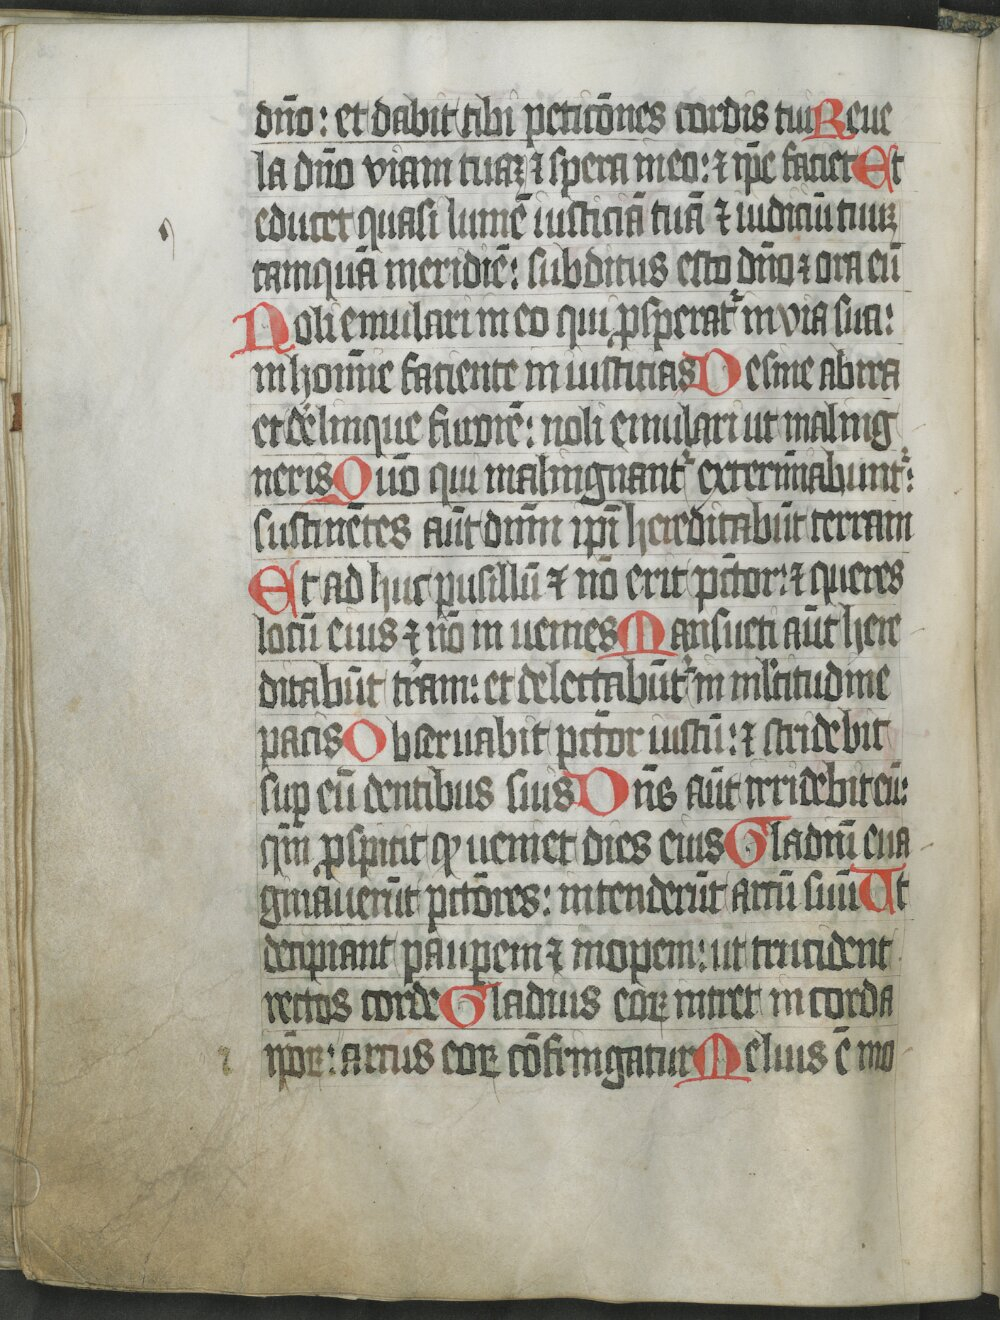 dn̄o: et dabit tibi peticōnes cordis tui Reue
la dn̄o viam tuaꝫ ⁊ spera in eo: ⁊ ip̄e faciet Et
educet quasi lumē iusticiā tuā ⁊ iudiciū tuuꝫ
tamquā meridiē: subditus esto dn̄o ⁊ ora eū
Noli emulari in eo qui ꝓsperatᷣ in via sua:
in homīne faciente in iusticias Desine ab ira
et delinque furorē: noli emulari ut maling
neris Qūo qui malingnantᷣ extermīabuntᷣ:
sustinētes aūt dn̄m ip̄i hereditabūt terram
Et ad huc pusillū ⁊ nō erit pc̄tor: ⁊ queres
locū eius ⁊ nō in uenies Mansueti aūt here
ditabūt tr̄am: et delectabūtᷣ in ml̄titudine
pacis Obseruabit pc̄tor iustū: ⁊ stridebit
suꝑ eū dentibus suis Dn̄s aūt irridebit eū:
qm̄ ꝓspicit ꝙ ueniet dies eius Gladiū eua
ginauerūt pc̄tōres: intenderūt arcū suū Ut
decipiant pauꝑem ⁊ inopem: ut trucident
rectos corde Gladius eoꝝ intret in corda
ip̄oꝝ: arcus eoꝝ cōfringatur Melius ē mo